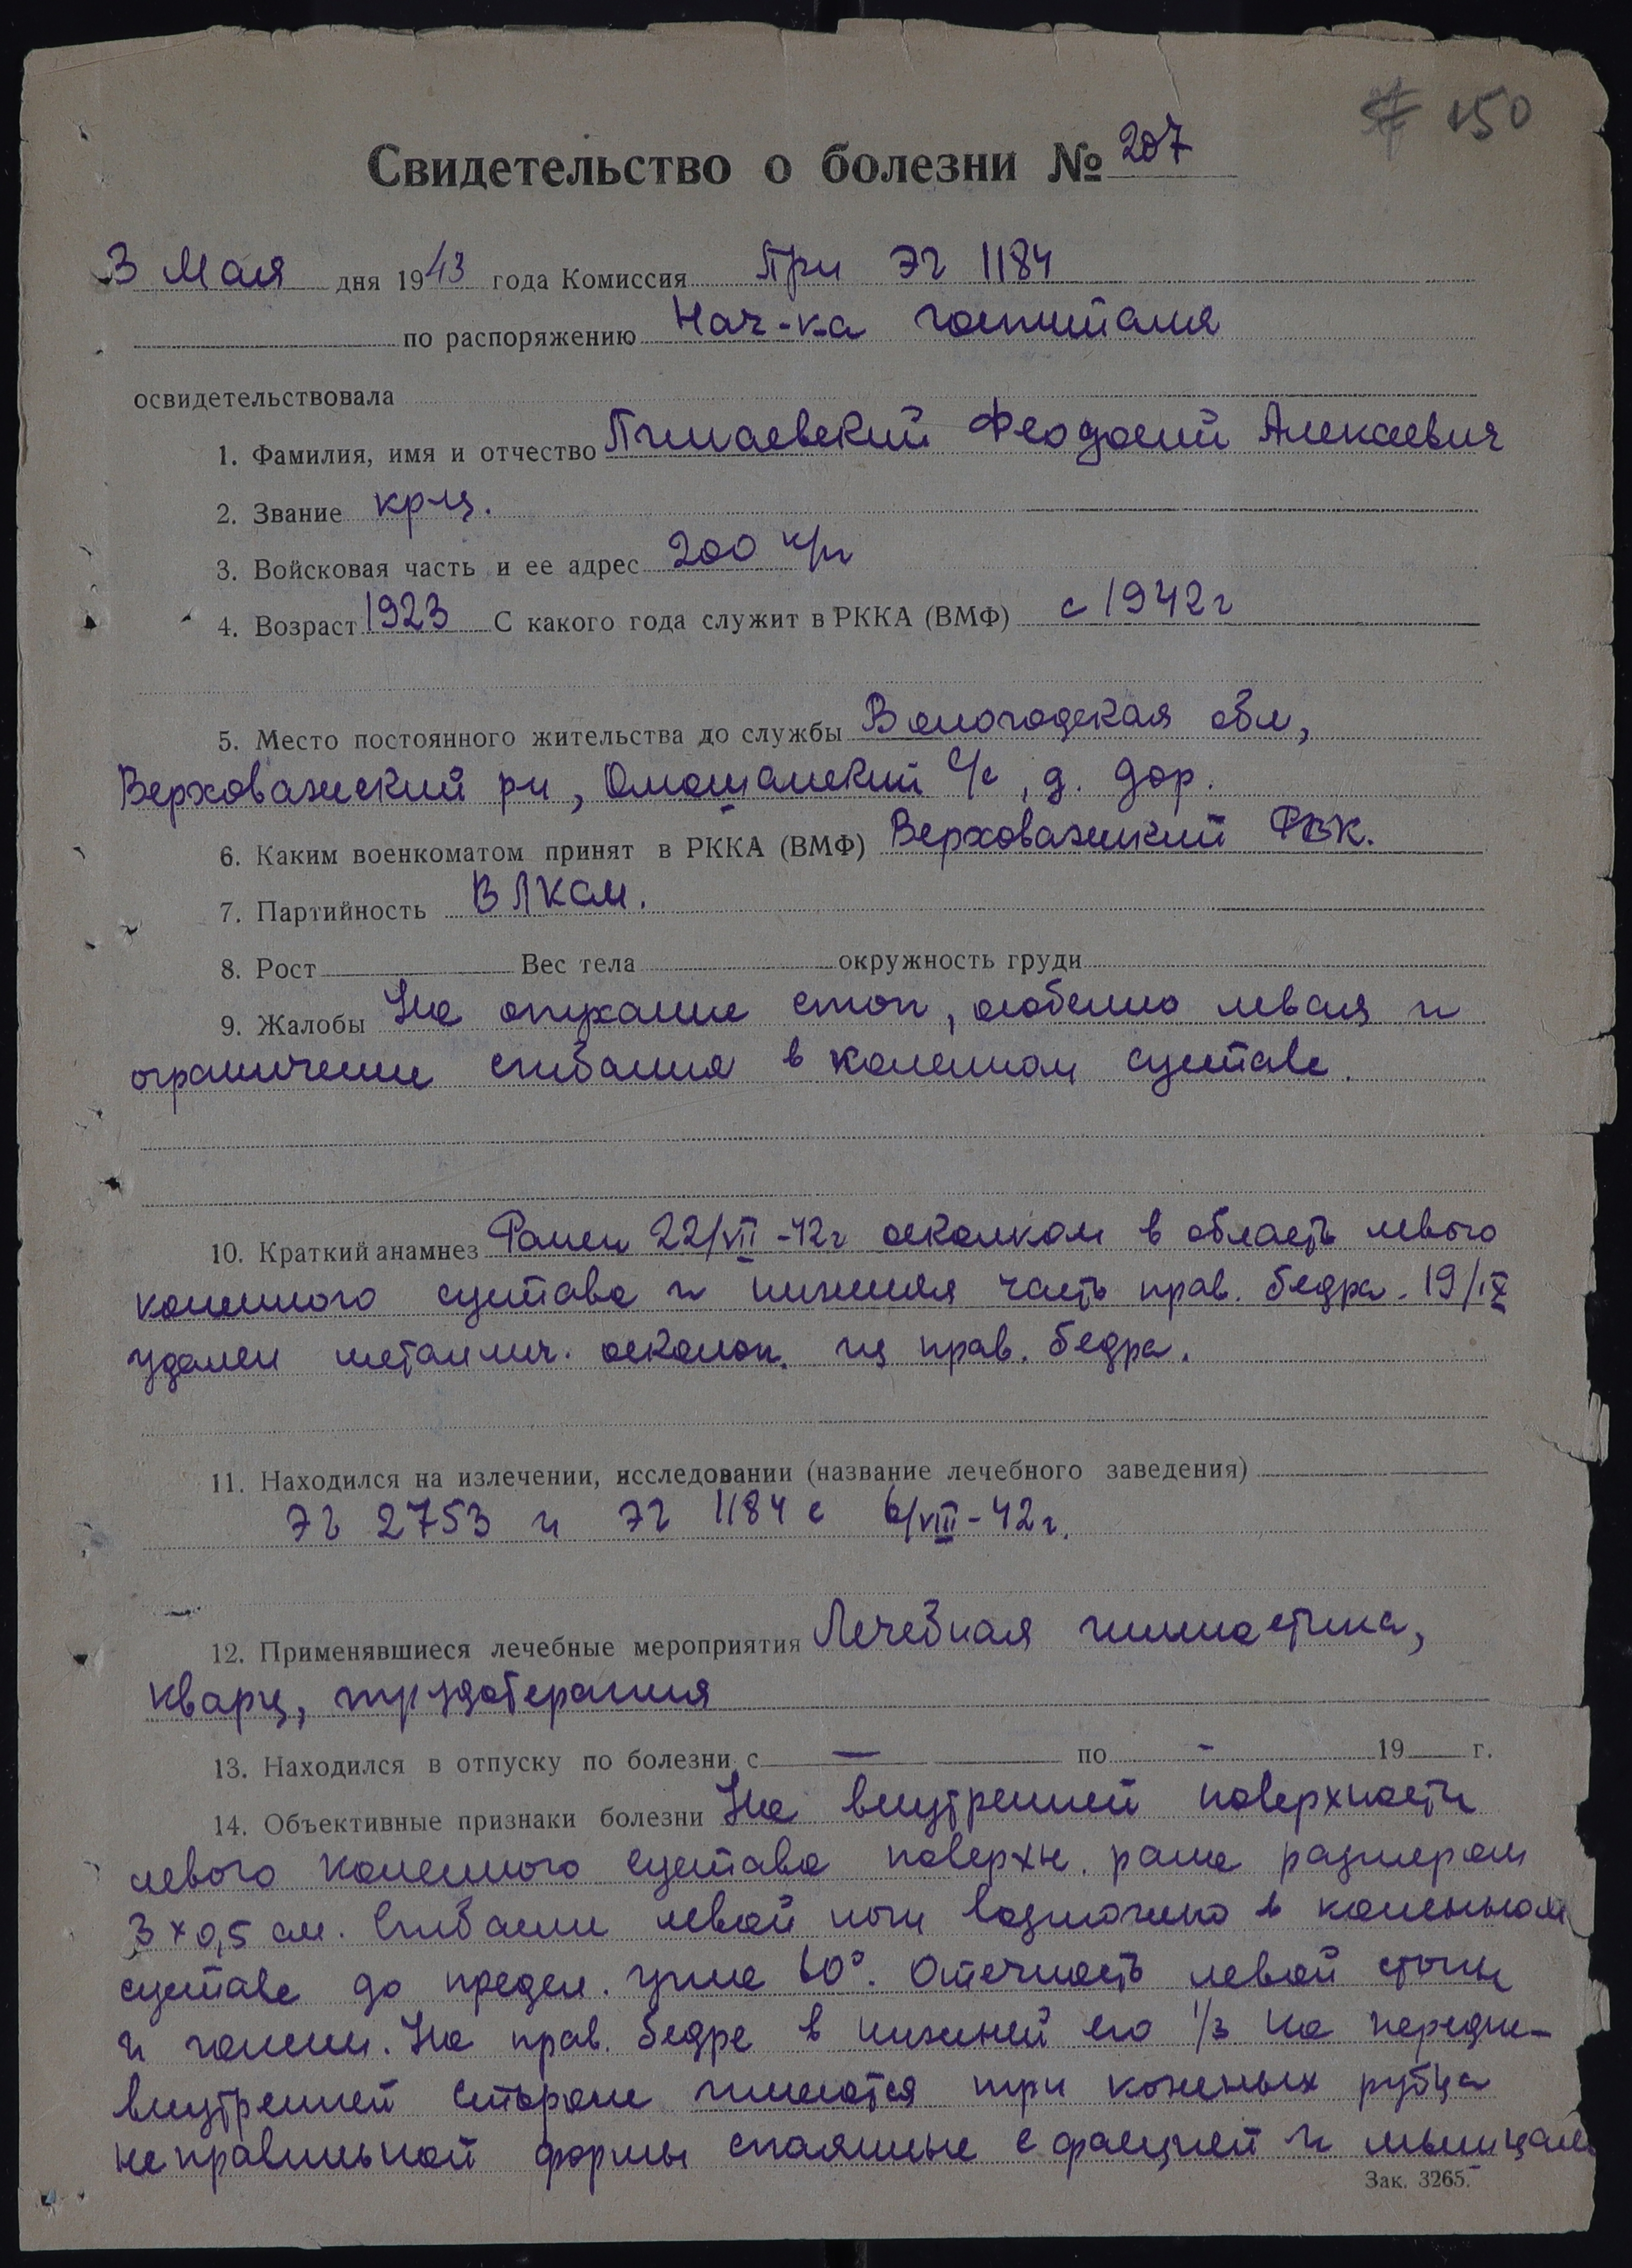 150
Свидетельство о болезни № 207
3 Мая дня 1943 года Комиссия При ЭГ 1184
по распоряжению Нач-ка госпиталя
освидетельствовала
1. Фамилия, имя и отчество Феодосий Алексеевич
2. Звание кр-ц.
3. Войсковая часть и ее адрес 200
4. Возраст 1923 С какого года служит в РККА (ВМФ) с 1942 г
5. Место постоянного жительства до службы Вологодская обл,
Верховажский рн, с/с, д. Дор.
6. Каким военкоматом принят в РККА (ВМФ) Верховажский РВК.
7. Партийность ВЛКСМ.
8. Рост Вес тела окружность груди
9. Жалобы На опухание стоп, особенно левая и
ограничение сгибания в коленном суставе.
10. Краткий анамнез Ранен 22/VII-42г осколком в область левого
коленного сустава и нижняя часть прав. бедра. 19/IX
удален металлич. осколок. из прав. бедра.
11. Находился на излечении, исследовании (название лечебного заведения)
ЭГ 2753 и ЭГ 1184 с 6/VIII-42г.
12. Применявшиеся лечебные мероприятия Лечебная гимнастика,
кварц, трудотерапия
13. Находился в отпуску по болезни с — по - 19 г.
14. Объективные признаки болезни На внутренней поверхности
левого коленного сустава поверхн. рана размером
3×0,5 см. Сгибание левой ноги возможно в коленном
суставе до предел. угла 60°. Отечность левой стопы
и голени. На прав. бедре в нижней его 1/3 на передне-
внутренней стороне имеются три кожных рубца
неправильной формы спаянные с фасцией и мышцами
Зак. 3265.